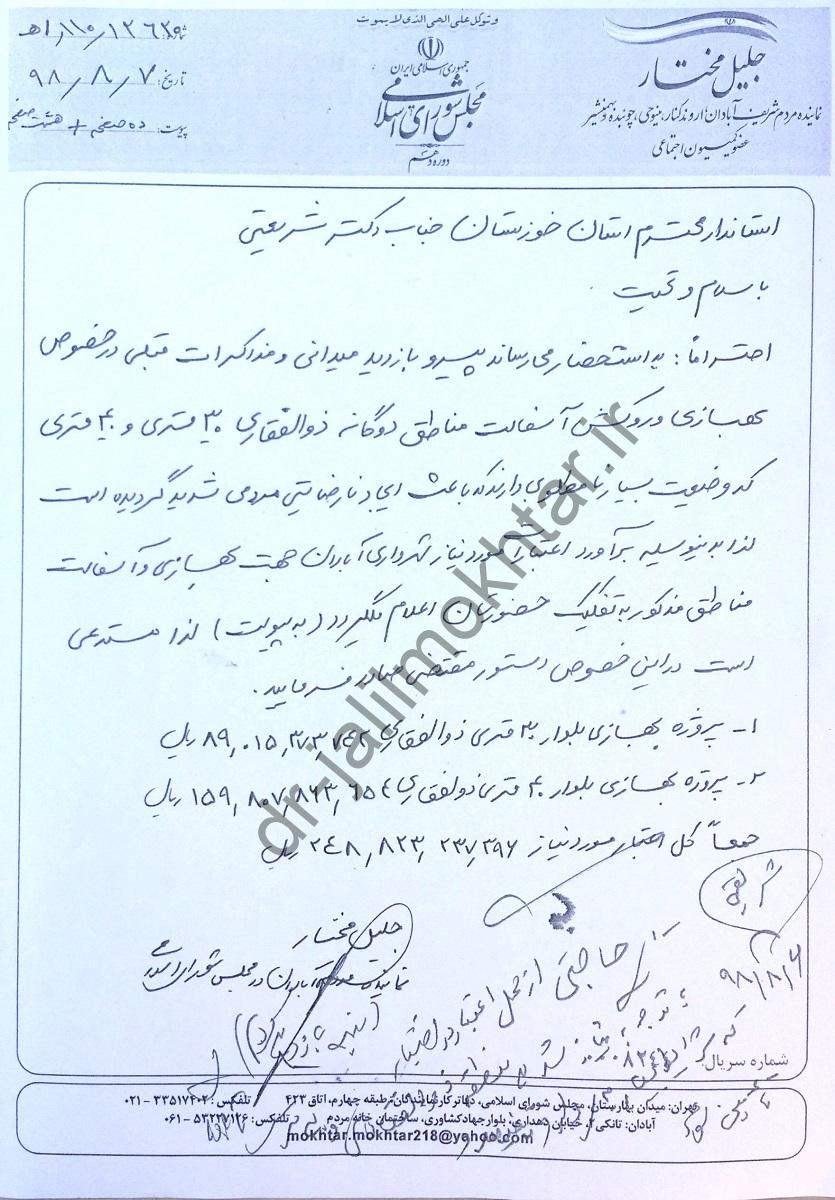 وتوکل علی الحی الذی لا یموت
جمهوری اسلامی ایران
مجلس شورای اسلامی
دوره دهم
جلیل مختار
نماینده مردم شریف آبادان، اروندکنار، مینوحی، چوئبده و بهمنشیر
عضو کمیسیون اجتماعی
شماره:
تاریخ: ۹۸/۸/۷
پیوست: ده صفحه + هشت صفحه
استاندار محترم استان خوزستان جناب دکتر شریعتی
با سلام و تحیت
احتراماً: به استحضار می‌رساند پیرو بازدید میدانی و مذاکرات قبلی در خصوص
بهسازی و روکش آسفالت مناطق دوگانه ذوالفقاری ۳۰ متری و ۴۰ متری
که وضعیت بسیار نامطلوبی دارند که باعث ایجاد نارضایتی مردمی شدید گردیده است
لذا بدینوسیله برآورد اعتبار مورد نیاز شهرداری آبادان جهت بهسازی و آسفالت
مناطق مذکور به تفکیک حضورتان اعلام میگردد (به پیوست) لذا مستدعی
است در این خصوص دستور مقتضی صادر فرمایید.
۱- پروژه بهسازی بلوار ۳۰ متری ذوالفقاری ۸۹,۰۱۵,۳۷۳,۷۴۲ ریال
۲- پروژه بهسازی بلوار ۴۰ متری ذولفقاری ۱۵۹,۸۰۷,۸۶۳,۶۵۴ ریال
جمعاً کل اعتبار مورد نیاز ۲۴۸,۸۲۳,۲۳۷,۳۹۶ ریال
جلیل مختار
نماینده مردم آبادان در مجلس شورای اسلامی
۹۸/۸/۶
شماره سریال: ۸۲۴۴
تهران: میدان بهارستان، مجلس شورای اسلامی، دفاتر کار نمایندگان، طبقه چهارم، اتاق ۴۲۳ تلفکس: ۳۳۵۱۷۴۰۲ - ۰۲۱
آبادان: تانکی ۲، خیابان دهداری، بلوار جهادکشاورزی، ساختمان خانه مردم تلفکس: ۵۳۲۲۷۱۲۶ - ۰۶۱
mokhtar.mokhtar218@yahoo.com
dr-jalilmokhtar.ir